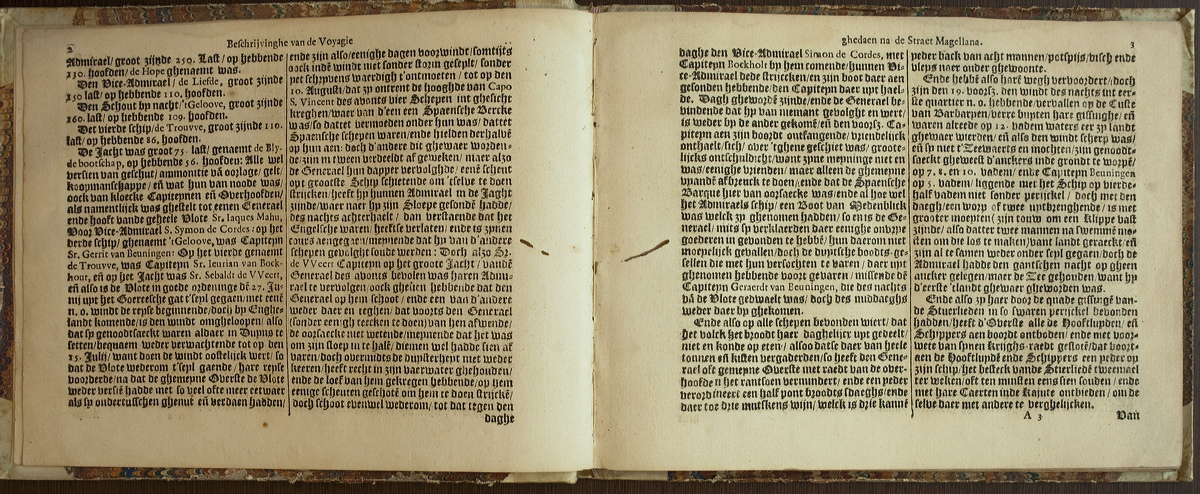 2
Beschrijvinghe van de Voyagie
Admirael/ groot zijnde 250. Last/ op hebbende
130. hoofden/ de Hope ghenaemt was.
Den Vice-Admirael/ de Liefde, groot zijnde
150 last/ op hebbende 110. hoofden.
Den Schout by nacht/ 'tGeloove, groot zijnde
160. last/ op hebbende 109. hoofden.
Det vierde schip/ de Trouvve, groot zijnde 110.
last/ op hebbende 86. hoofden.
De Jacht was groot 75. last/ genaemt de Bly-
de bootschap, op hebbende 56. hoofden: Alle wel
versien van geschut/ ammonitiē vā oorloge/ gelt/
koopmanschappe/ eñ wat hun van noode was/
oock van kloecke Capiteynen eñ Overhoofden/
als namentlijck was ghestelt tot eenen Generael
ende hooft vande geheele Vlote Sr. Iaques Mahu,
Voor Vice-Admirael S. Symon de Cordes: op het
derde schip/ ghenaemt 'tGeloove, was Capiteyn
Sr. Gerrit van Beuningen: Op het vierde genaemt
de Trouvve, was Capiteyn Sr. Ieurian van Bock-
hout, eñ op het Jacht was Sr. Sebaldt de VVeert,
eñ also is de Vlote in goede ordeninge dē 27. Ju-
nij uyt het Goereesche gat t'seyl gegaen/ met eenē
n. o. windt de reyse beginnende/ doch by Enghe-
landt komende/ is den windt omgheloopen/ also
dat sy genootsaeckt waren aldaer in Duyns te
setten/ bequaem weder verwachtende tot op den
15. Julij/ want doen de windt oostelijck wert/ so
dat de Vlote wederom t'seyl gaende/ hare reyse
voorderde/ na dat de ghemeyne Overste de Vlote
weder versiē hadde met so veel ofte meer eetwaer
als sy ondertusschen ghenut eñ verdaen hadden/
ende zijn also/ eenighe dagen voorwindt/ somtijts
oock indē windt niet sonder storm geseylt/ sonder
yet schryvens waerdigh t'ontmoeten/ tot op den
10. Augusti/ dat zy ontrent de hooghde van Capo
S. Vincent des avonts vier Schepen int ghesichte
kreghen/ waer van d'een een Spaensche Bercke
was/ so dattet vermoeden onder hun was/ dattet
Spaensche schepen waren/ ende hielden derhalvē
op hun aen: doch d'andere dit ghewaer worden-
de/ zijn m tween verdeelt af geweken/ maer alzo
de Generael hun dapper vervolghde/ eenē schent
opt grootste Schip schietende om 'tselve te doen
strijcken/ heeft hy hunnen Admirael in de Jaght
zijnde/ waer naer hy zijn Sloepe gesondē hadde/
des nachts achterhaelt/ dan verstaende dat het
Engelsche waren/ heeftse verlaten/ ende is zynen
cours aengegaen/ meynende dat hy van d'andere
schepen gevolght soude werden: Doch alzo Sr.
de VVeert Capiteyn op het groote Jacht/ vandē
Generael des avonts bevolen was/ haren Admi-
rael te vervolgen/ oock ghesien hebbende dat den
Generael op hem schoot/ ende een van d'andere
weder daer en teghen/ dat voorts den Generael
(sonder eenigh teecken te doen) van hen afwende/
de oorsaecke niet wetende/ meynende dat het was
om zijn sloep in te half/ dienen tyd hadde sien af
varen/ doch overmidts de duysterheyt niet weder
keeren/ heeft recht in zijn vaerwater ghehouden/
ende de loef van hem gekregen hebbende/ op hem
eenige scheuten geschotē om hem te doen strijckē/
doch schoot evenwel wederom/ tot dat tegen den
daghe
ghedaen na de Straet Magellana.
3
daghe den Vice-Admirael Simon de Cordes, met
Capiteyn Bockholt by hem comende/ hunnen Vi-
ce-Admirael dede strijcken/ en zijn boot daer aen
gesonden hebbende/ den Capiteyn daer uyt hael-
de. Dagh ghewordē zijnde/ ende de Generael be-
vindende dat hy van niemant gevolght en wert/
is weder by de ander gekomē/ eñ den voorsz. Ca-
piteyn aen zijn boordt ontfangende/ vriendelijck
onthaelt/ sich/ over 'tghene geschiet was/ groote-
lijcks ontschuldicht/ want zyne meyninge niet en
was/ eenighe vrienden/ maer alleen de ghemeyne
vyandē afbreuck te doen/ ende dat de Spaensche
Barque hier van oorsaecke was/ ende al hoe wel
het Admiraels schip/ een Boot van Medenblick
was welck zy ghenomen hadden/ so en is de Ge-
nerael/ mits sy verklaerden daer eenighe onvrye
goederen in gevonden te hebbē/ hun daerom niet
moeyelijck gevallen/ doch de duytsche boots-ge-
sellen die met hun versochten te varen/ daer uyt
ghenomen hebbende/ voort gevaren/ missende dē
Capiteyn Geraerdt van Beuningen, die des nachts
vā de Vlote gedwaelt was/ doch des middaeghs
weder daer by ghekomen.
Ende also op alle schepen bevonden wiert/ dat
het volck het broodt haer daghelijcx uyt gedeelt/
niet en konde op eten/ also datse daer van heele
tonnen eñ kisten vergaderden/ so heeft den Gene-
rael oft gemeyne Overste met raedt van de over-
hoofdē n het rantsoen vermindert/ ende een yeder
verordineert een half pont broodts sdaeghs/ ende
daer toe drie mutskens wijn/ welck is drie kannē
yeder back van acht mannen/ potspijs/ visch ende
vleys naer onder ghewoonte.
Ende hebbē also harē wegh vervoordert/ doch
zijn den 19. voorsz. den windt des nachts int eer-
ste quartier n. o. hebbende/ vervallen op de Custe
van Barbaryen/ verre buyten hare gissinghe/ eñ
waren alreede op 12. vadem waters eer zy landt
ghewaer wierden/ eñ also den windt scherp was/
eñ sy niet t'Zeewaerts en mochten/ zijn genoodt-
saeckt gheweest d'anckers inde grondt te worpē/
op 7. 8. en 10. vadem/ ende Capiteyn Beuningen
op 5. vadem/ liggende met het Schip op vierde-
half vadem niet sonder perijckel/ doch met den
dagh/ een worp of twee uytbzenghende/ is met
grooter moeyten (zijn touw om een Klippe vast
zijnde/ also datter twee mannen na swemmē mo-
sten om die los te maken) vant landt geraeckt/ eñ
zijn al te samen weder onder seyl gegaen/ doch de
Admirael hadde den gantschen nacht op gheen
ancker gelegen/ maer de Zee gehouden/ want hy
d'eerste 'tlandt ghewaer gheworden was.
Ende also zy haer door de quade gissingē van-
de Stuerlieden in so swaren perijckel bevonden
hadden/ heeft d'Overste alle de Hooftluyden/ eñ
Schippers aen boordt onthoden/ ende met voor-
wete van synen krijghs-raedt gestelt/ dat voort-
aen de Hooftluydē ende Schippers een yeder op
zijn schip/ het besteck vande Stierliedē tweemael
ter weken/ oft ten minsten eens sien souden/ ende
met hare Caerten inde kajute ontbieden/ om de
selve daer met andere te verghelijcken.
A 3
Van